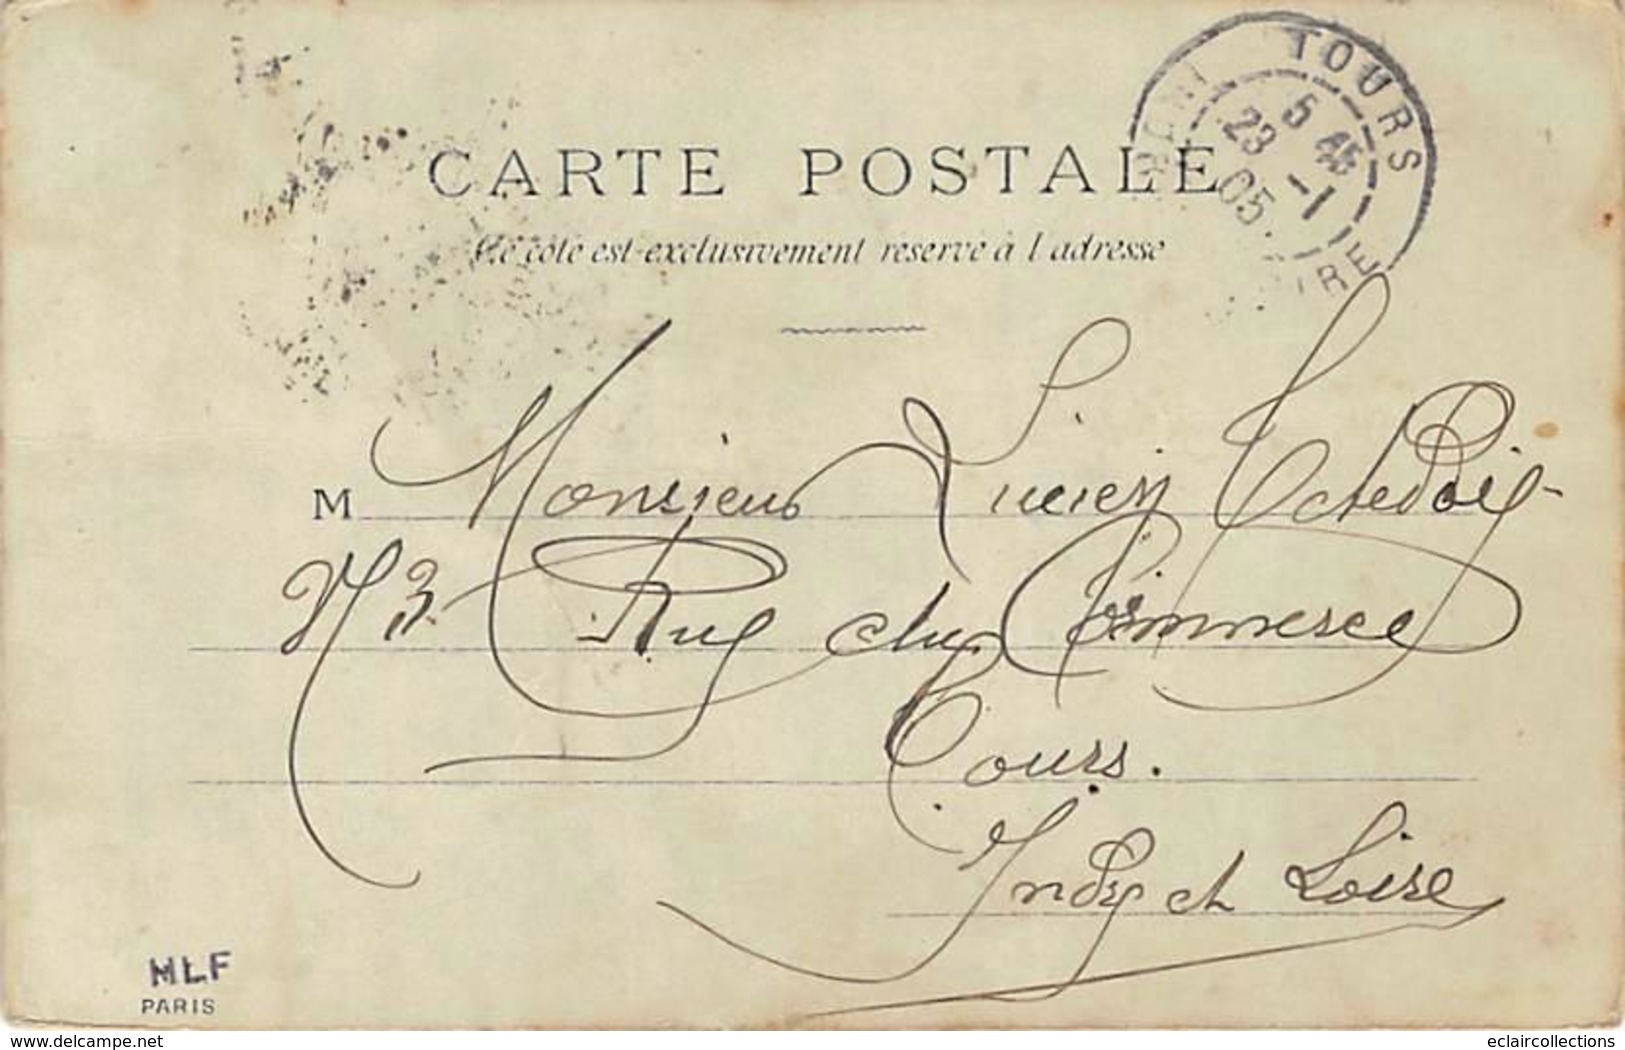 CARTE POSTALE
Ce côté est exclusivement réservé à l'adresse
TOURS
5 45
23 -1
05
INDRE LOIRE
M Monsieur Lucien
N 3 Rue du Commerce
Tours.
Indre et Loire
MLF
PARIS
www.delcampe.net
eclaircollections